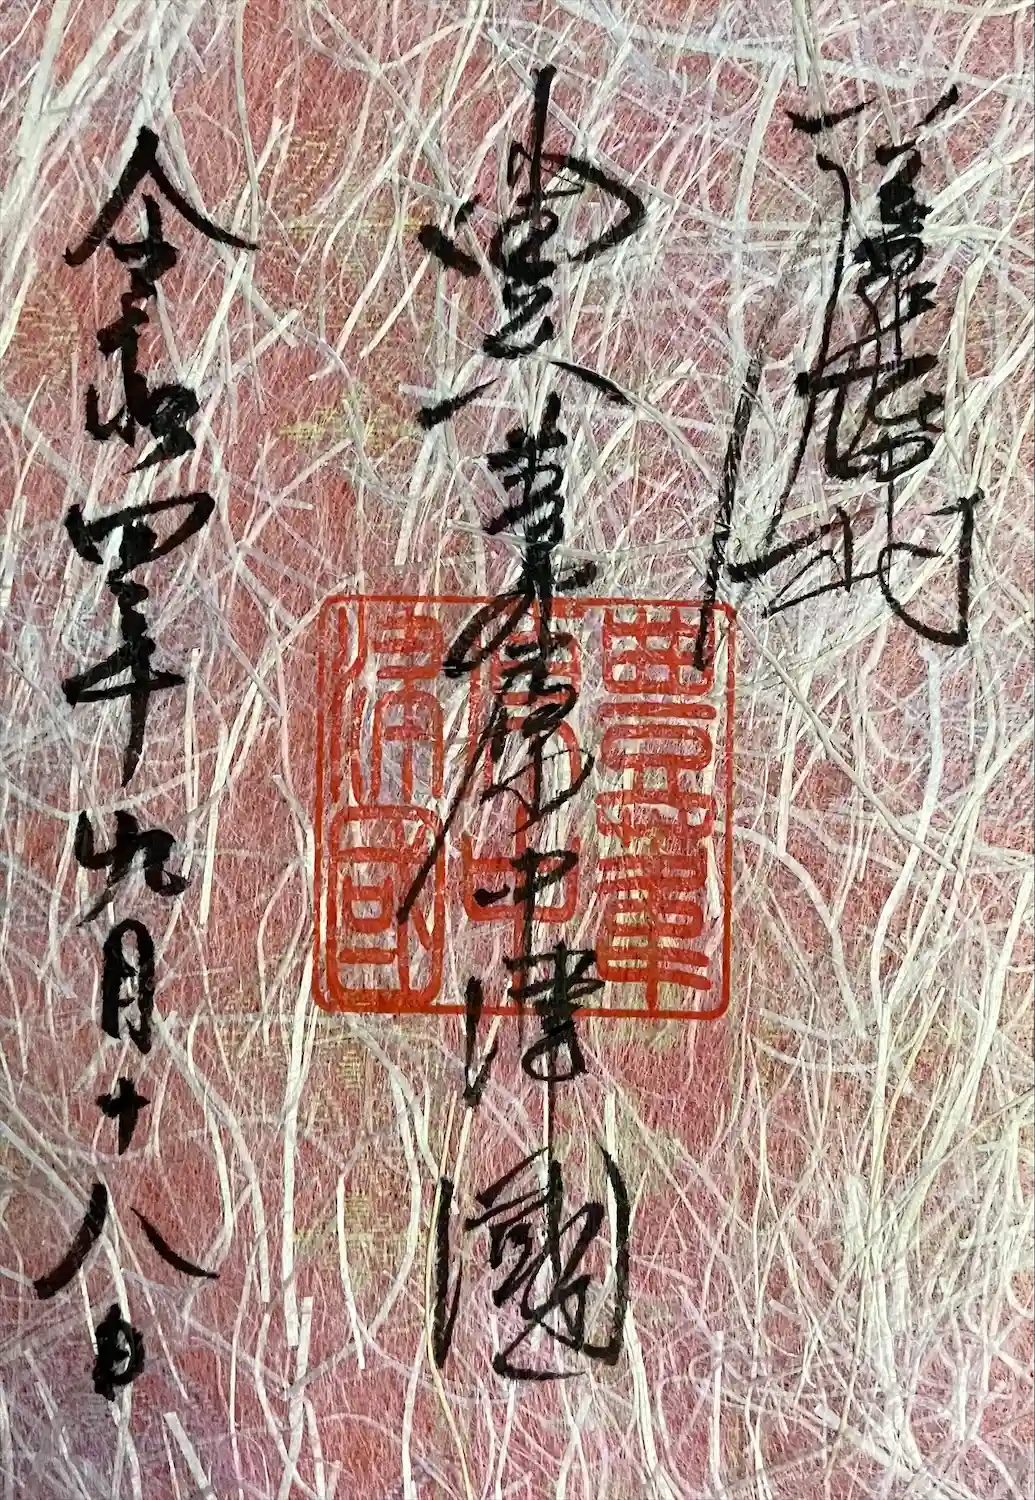 豊葦原中津國
令和四年九月十八日
豊葦原中津國